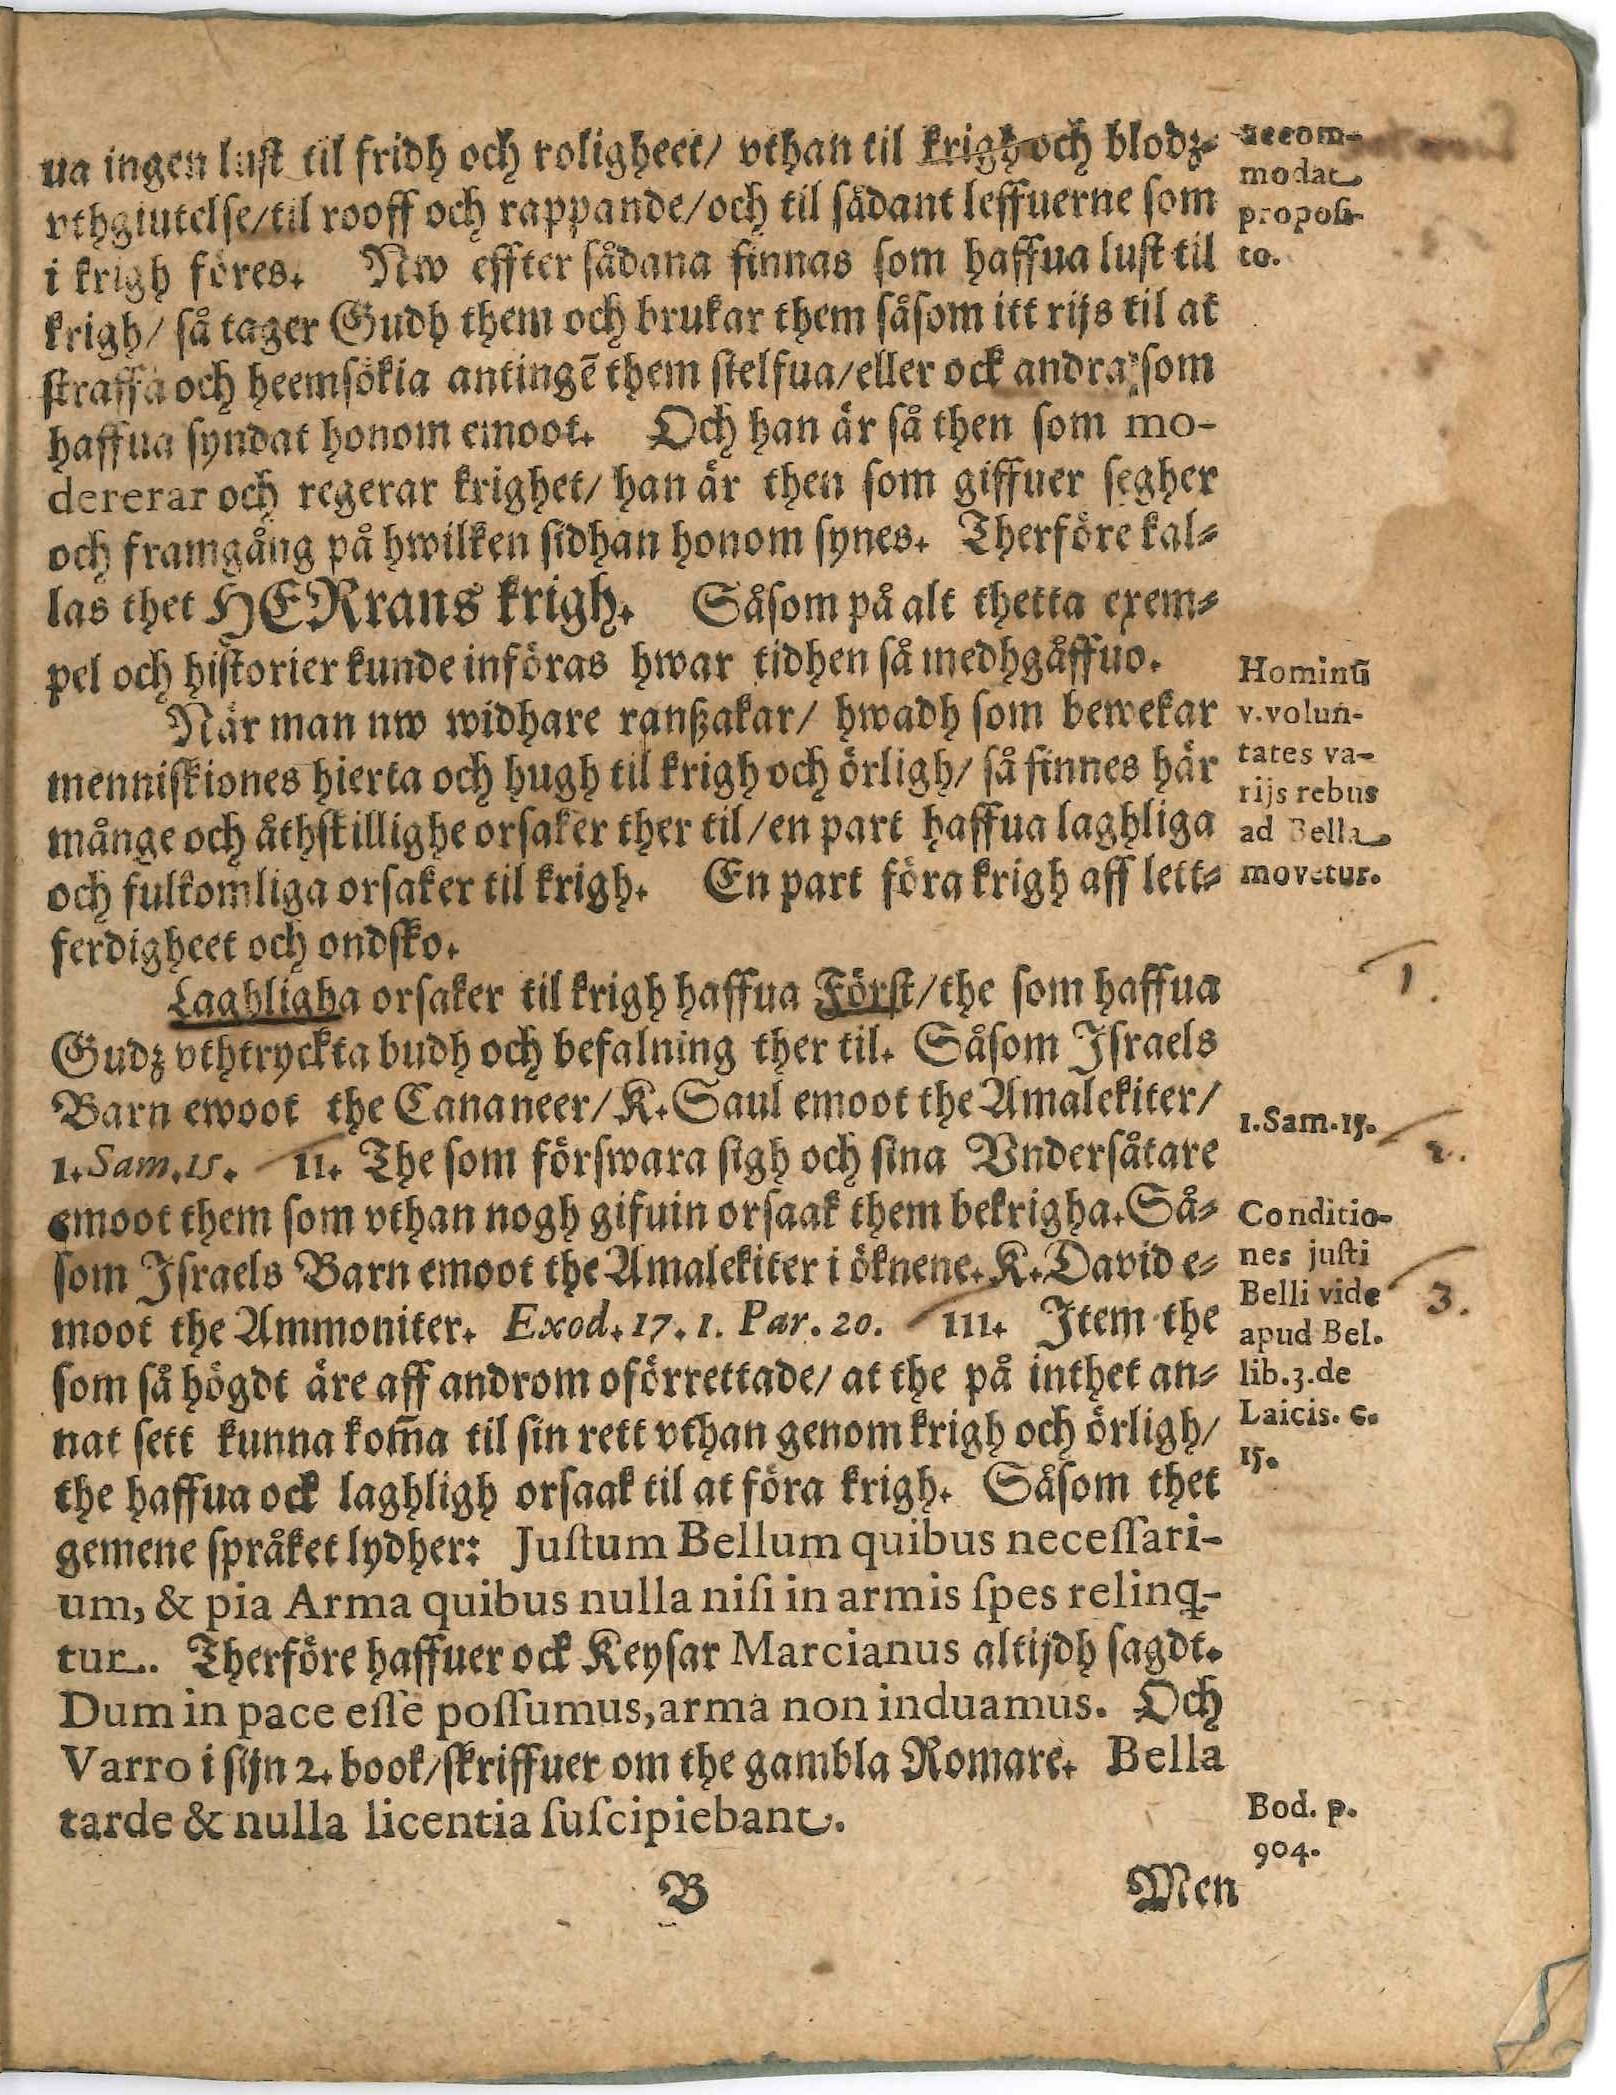 ua ingen lust til fridh och roligheet/ vthan til krigh och blodz-
vthgiutelse/til rooff och rappande/och til sådant leffuerne som
i krigh föres. Nw effter sådana finnas som haffua lust til
krigh/ så tager Gudh them och brukar them såsom itt rijs til at
straffa och heemsökia antingē them stelfua/eller ock andra som
haffua syndat honom emoot. Och han är så then som mo-
dererar och regerar krighet/ han är then som giffuer segher
och framgång på hwilken sidhan honom synes. Therföre kal-
las thet HERrans krigh. Såsom på alt thetta exem-
pel och historier kunde införas hwar tidhen så medhgåffuo.
När man nw widhare ranßakar/ hwadh som bewekar
menniskiones hierta och hugh til krigh och örligh/ så finnes här
månge och åthskillighe orsaker ther til/en part haffua laghliga
och fulkomliga orsaker til krigh. En part föra krigh aff lett-
ferdigheet och ondsko.
Laghligha orsaker til krigh haffua Först/the som haffua
Gudz vthtryckta budh och befalning ther til. Såsom Israels
Barn ewoot the Cananeer/K. Saul emoot the Amalekiter/
1. Sam. 15. II. The som förswara sigh och sina Vndersåtare
emoot them som vthan nogh gifuin orsaak them bekrigha. Så-
som Israels Barn emoot the Amalekiter i öknene. K. David e-
moot the Ammoniter. Exod. 17. 1. Par. 20. III. Item the
som så högdt äre aff androm oförrettade/ at the på inthet an-
nat sett kunna kom̄a til sin rett vthan genom krigh och örligh/
the haffua ock laghligh orsaak til at föra krigh. Såsom thet
gemene språket lydher: Justum Bellum quibus necessari-
um, & pia Arma quibus nulla nisi in armis spes relinq-
tur. Therföre haffuer ock Keysar Marcianus altijdh sagdt.
Dum in pace esse possumus, arma non induamus. Och
Varro i sijn 2. book/skriffuer om the gambla Romare. Bella
tarde & nulla licentia suscipiebant.
B
Men
accom-
modat
proposi-
to.
Hominū
v. volun-
tates va-
rijs rebus
ad Bella
movetur.
1.
1. Sam. 15.
2.
Conditio-
nes justi
Belli vide
apud Bel.
lib. 3. de
Laicis. c.
15.
3.
Bod. p.
904.